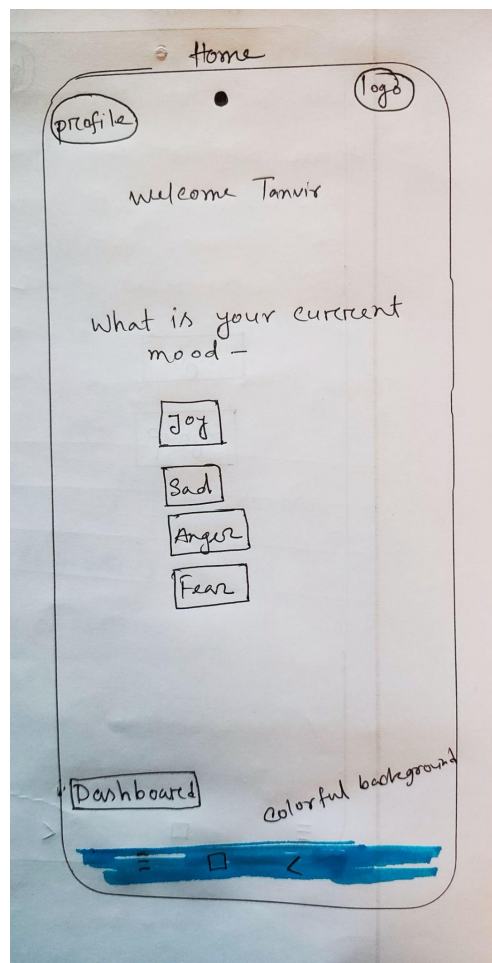 Home
profile
logo
Welcome Tanvir
What is your current
mood -
Joy
Sad
Anger
Fear
Dashboard
colorful background